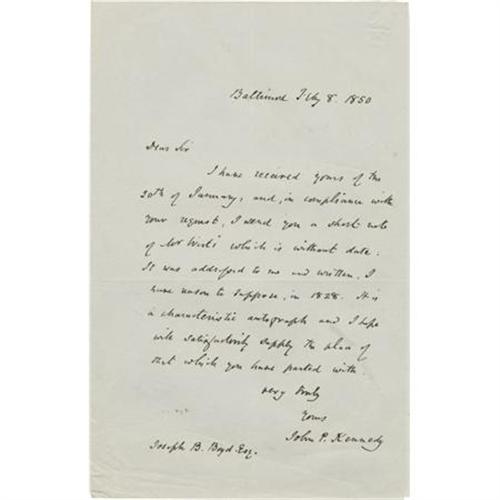 Baltimore Feby 8. 1850
Dear Sir
I have received yours of the
20th of January, and, in compliance with
your request, I send you a short note
of Mr Wirt's which is without date.
It was addressed to me and written, I
have reason to suppose, in 1828. It is
a characteristic autograph and I hope
will satisfactorily supply the place of
that which you have parted with
very truly
Yours
John P. Kennedy
Joseph B. Boyd Esq.